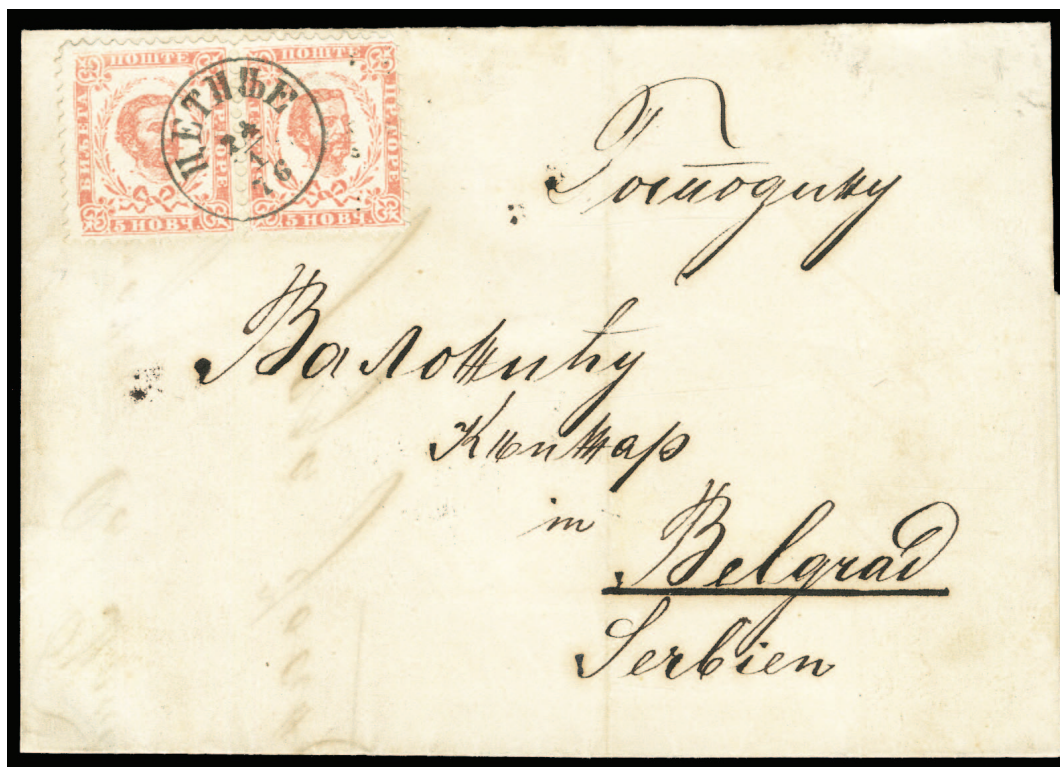 ПОШТЕ ПОШТЕ
ЦЕТИЊЕ
76
5 НОВЧ. 5 НОВЧ.
Господину
Валожићу
Књижар
in Belgrad
Serbien